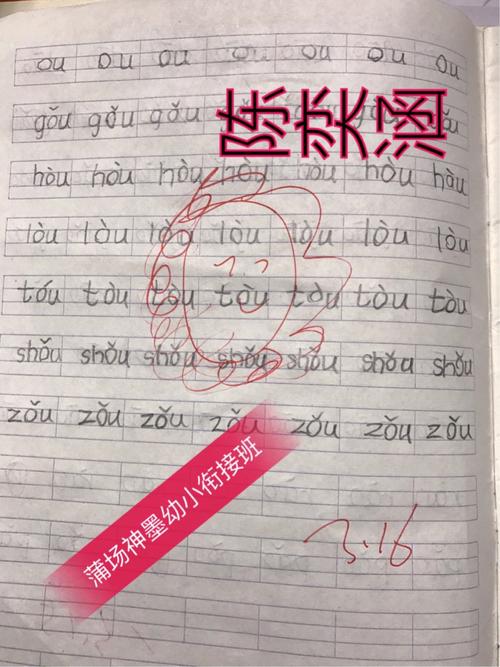 ou ou ou ou ou ou ou
gǒu gǒu gǒu
陈奕涵
hòu hòu hòu hòu hòu hòu hòu
lòu lòu lòu lòu lòu lòu lòu
tóu tòu tòu tòu tòu tòu tòu
shǒu shǒu shǒu shǒu shǒu shǒu shǒu
zǒu zǒu zǒu zǒu zǒu zǒu zǒu
蒲场神墨幼小衔接班
3.16